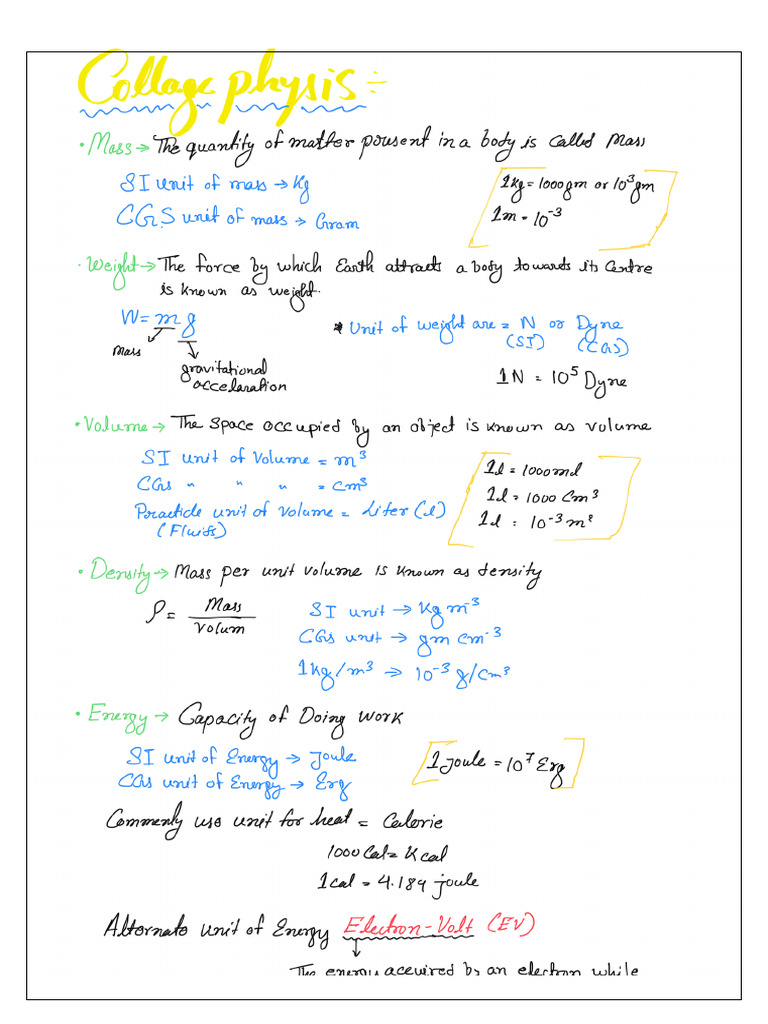 Collage physis :-
• Mass → The quantity of matter present in a body is called Mass
SI unit of mass → Kg
C.G.S unit of mass → Gram
1kg = 1000gm or 10³gm
1m = 10⁻³
• Weight → The force by which Earth attracts a body towards its centre
is known as weight.
W = mg
mass
gravitational
accelaration
* Unit of weight are = N or Dyne
(SI) (CGS)
1N = 10⁵ Dyne
• Volume → The space occupied by an object is known as volume
SI unit of Volume = m³
CGS " " " = cm³
Practicle unit of volume = Liter (l)
(Fluids)
1l = 1000ml
1l = 1000 Cm³
1l = 10⁻³ m³
• Density → Mass per unit volume is known as density
ρ = Mass
volum
SI unit → Kg m⁻³
CGS unit → gm cm⁻³
1kg/m³ → 10⁻³ g/cm³
• Energy → Capacity of Doing work
SI unit of Energy → Joule
CGS unit of Energy → Erg
1 Joule = 10⁷ Erg
Commenly use unit for heat = Calorie
1000 Cal = Kcal
1 cal = 4.184 joule
Alternate unit of Energy Electron-Volt (EV)
The energy acquired by an electron while